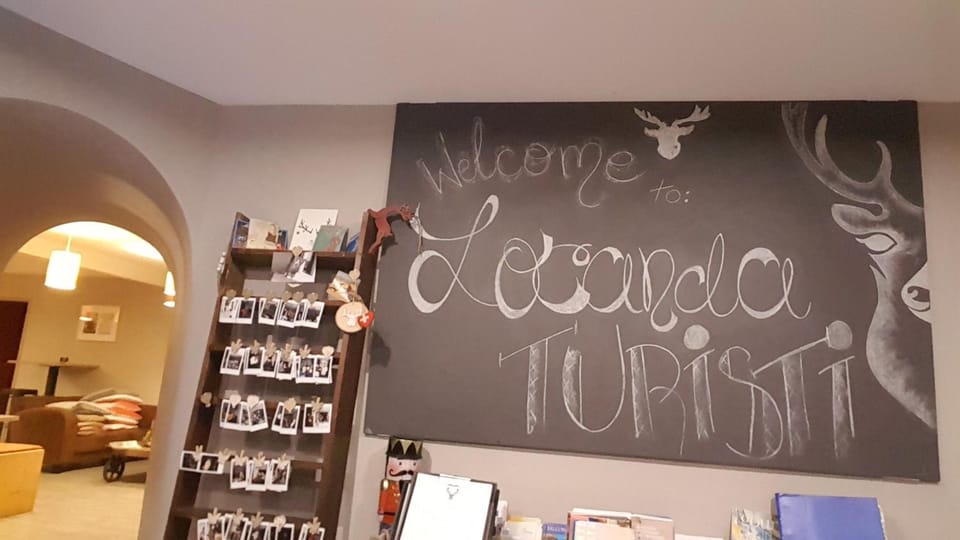 Welcome
to:
Locanda
TURiSTi